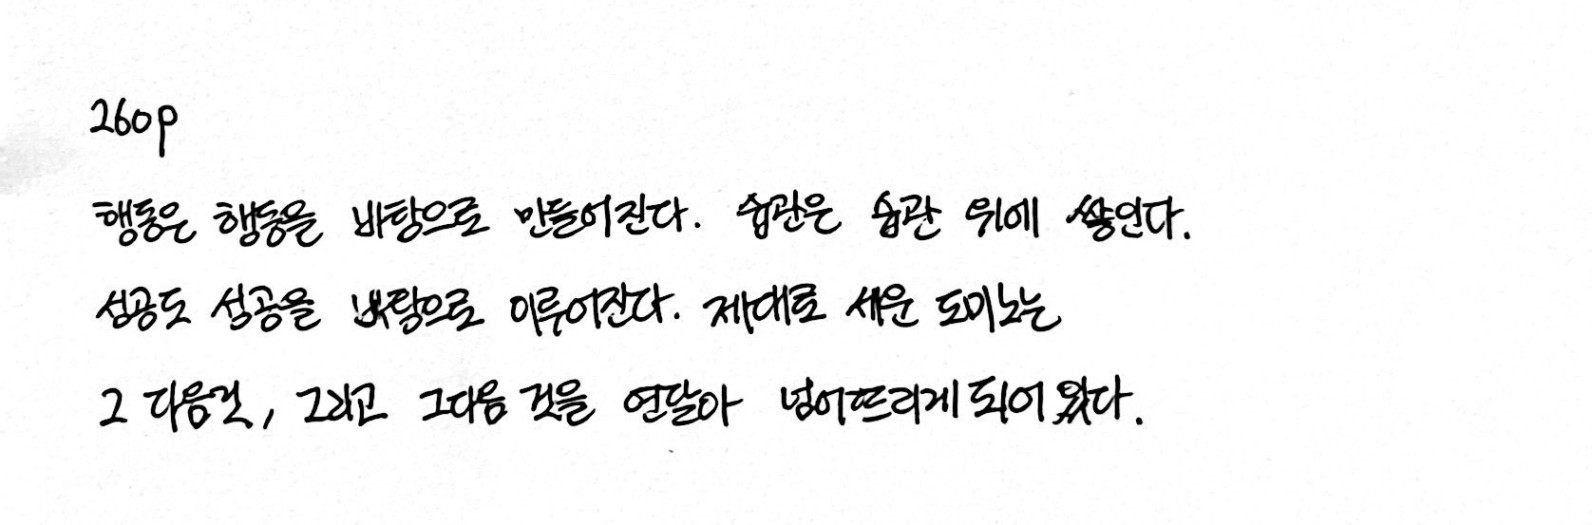 260p
행동은 행동을 바탕으로 만들어진다. 습관은 습관 위에 쌓인다.
성공도 성공을 바탕으로 이루어진다. 제대로 세운 도미노는
그 다음것, 그리고 그다음 것을 연달아 넘어뜨리게 되어 있다.